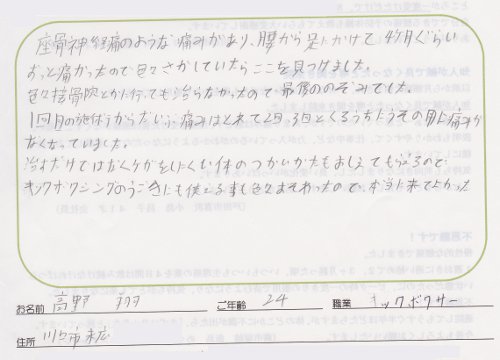 座骨神経痛のような痛みがあり、腰から足にかけて、4ヶ月ぐらい
ずっと痛かったので色々さがしていたらここを見つけました。
色々接骨院とかに行っても治らなかったので最後ののぞみでした。
1回目の施術うからだいぶ痛みはとれて2回、3回とくるうちにうその用に痛みが
なくなっていました。
治すだけではなくケガをしにくい体のつかいかたもおしえてもらえるので、
キックボクシングのうごきにも使える事も色々まなわったので、本当に来てよかった
お名前 高野
ご年齢 24
職業 キックボクサー
住所 川口市末広